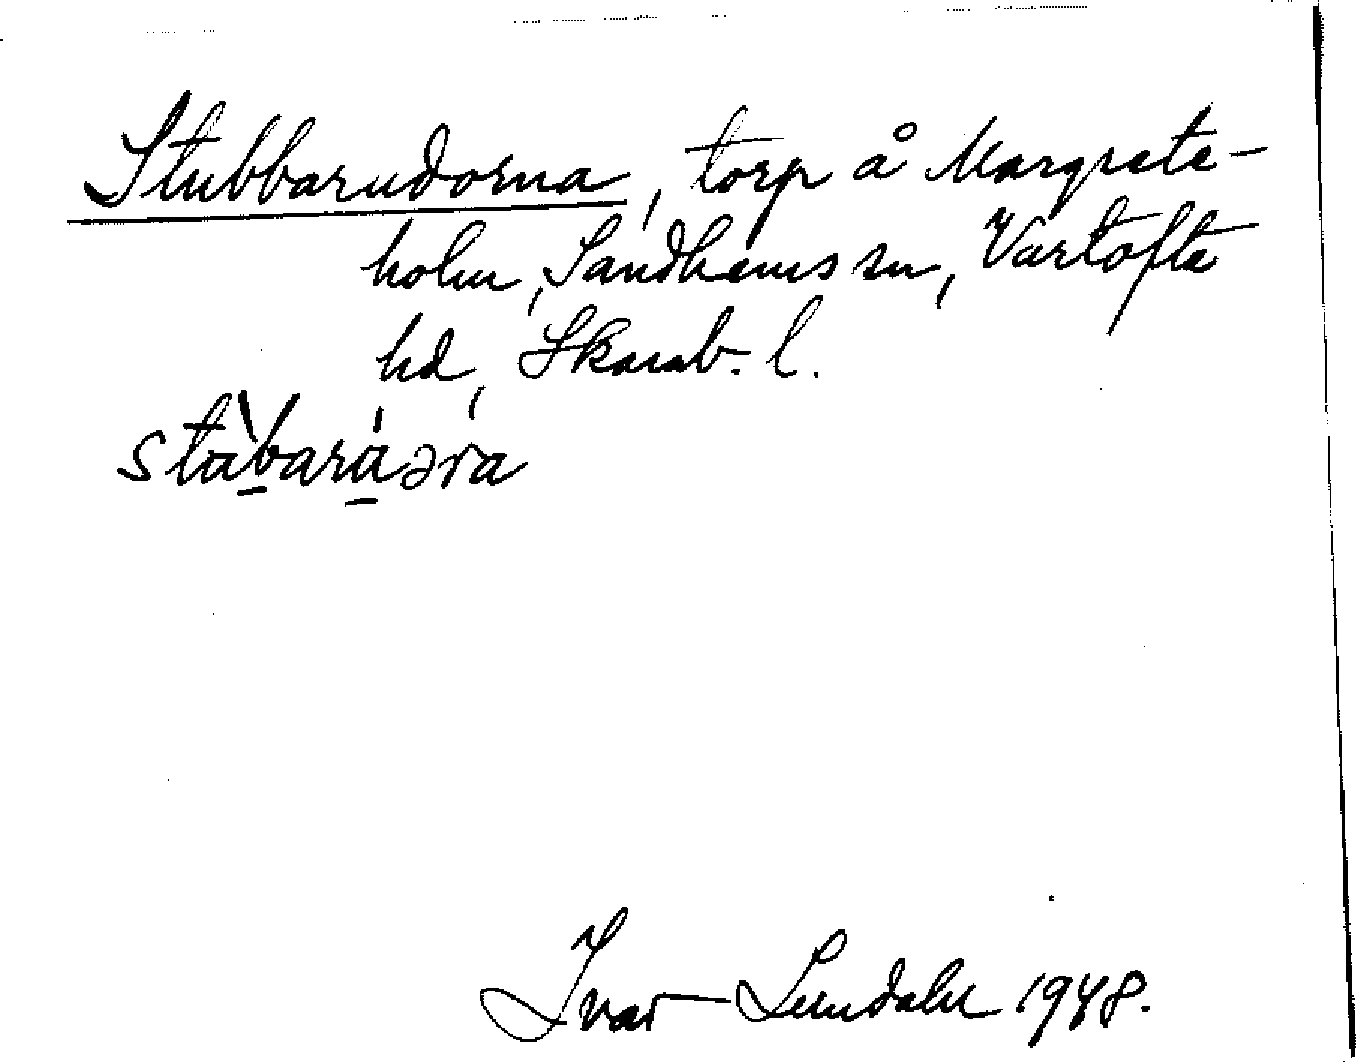 Stubbarudorna, torp å Margrete-
holm, Sandhems sn, Vartofta
hd, Skarab. l.
stàbaráəra
Ivar Lundahl 1948.